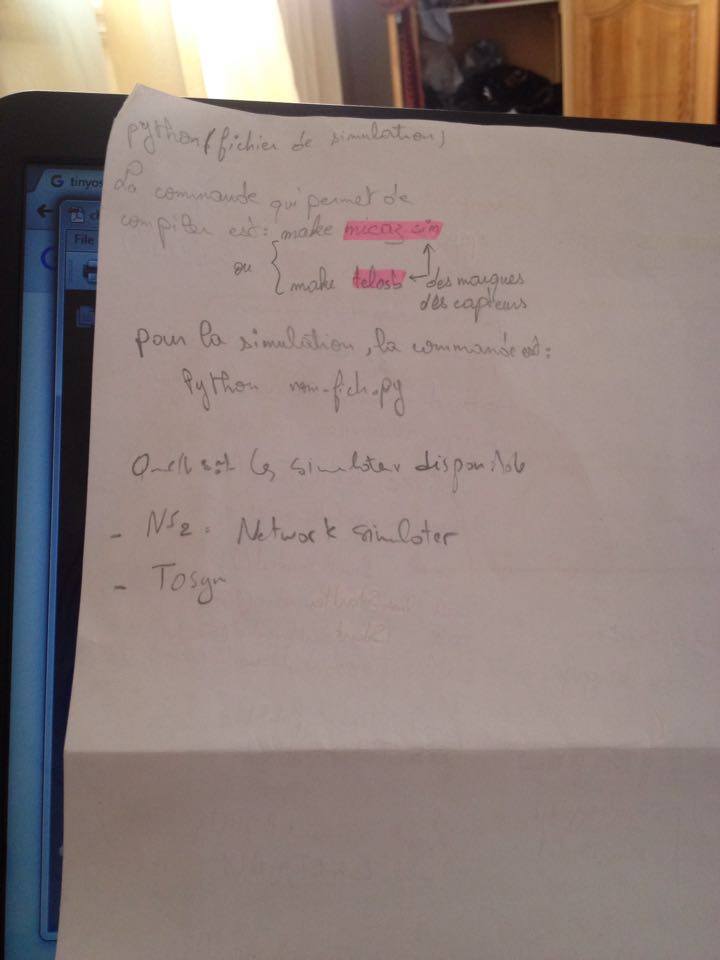 tinyos
File
python (fichier de simulation)
La commande qui permet de
compiler est: make micaz sim
ou
make telosb
des marques
des capteurs
pour la simulation, la commande est:
Python nom-fich.py
les simloter disponible
- NS2. Network simloter
- Tosym